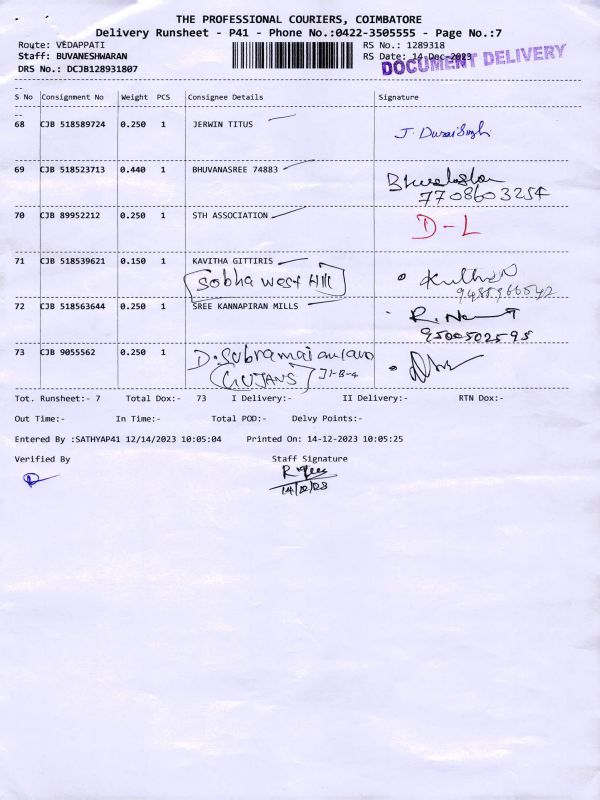 THE PROFESSIONAL COURIERS, COIMBATORE
Delivery Runsheet - P41 - Phone No.:0422-3505555 - Page No.:7
Route: VEDAPPATI RS No.: 1289318
Staff: BUVANESHWARAN RS Date: 14-Dec-2023
DRS No.: DCJB128931807 DOCUMENT DELIVERY
S No Consignment No Weight PCS Consignee Details Signature
68 CJB 518589724 0.250 1 JERWIN TITUS
69 CJB 518523713 0.440 1 BHUVANASREE 74883
7708603254
70 CJB 89952212 0.250 1 STH ASSOCIATION D-L
71 CJB 518539621 0.150 1 KAVITHA GITTIRIS
Sobha west Hill
72 CJB 518563644 0.250 1 SREE KANNAPIRAN MILLS
9500502595
73 CJB 9055562 0.250 1
Tot. Runsheet:- 7 Total Dox:- 73 I Delivery:- II Delivery:- RTN Dox:-
Out Time:- In Time:- Total POD:- Delvy Points:-
Entered By :SATHYAP41 12/14/2023 10:05:04 Printed On: 14-12-2023 10:05:25
Verified By Staff Signature
14/12/23